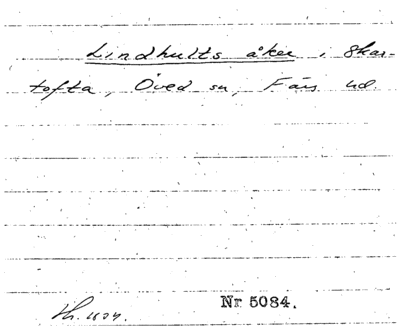 Lindhults åker, Skar-
tofta, Öved sn, Färs hd.
Nr 5084.